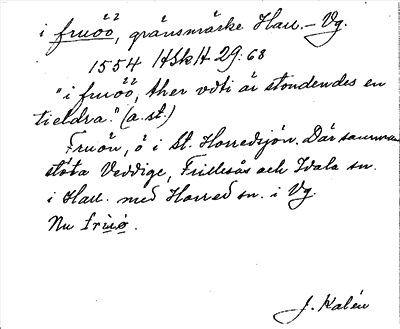 i fruöö, gränsmärke Hall. – Vg.
1554 HSkH 29:68
"i fruöö, ther vdti är stondendes en
tieldra." (a. st.)
Fruön, ö i St. Horredsjön. Där samman-
stöta Veddige, Frillesås och Idala sn.
i Hall. med Horred sn. i Vg.
Nu frùö.
J. Kalén